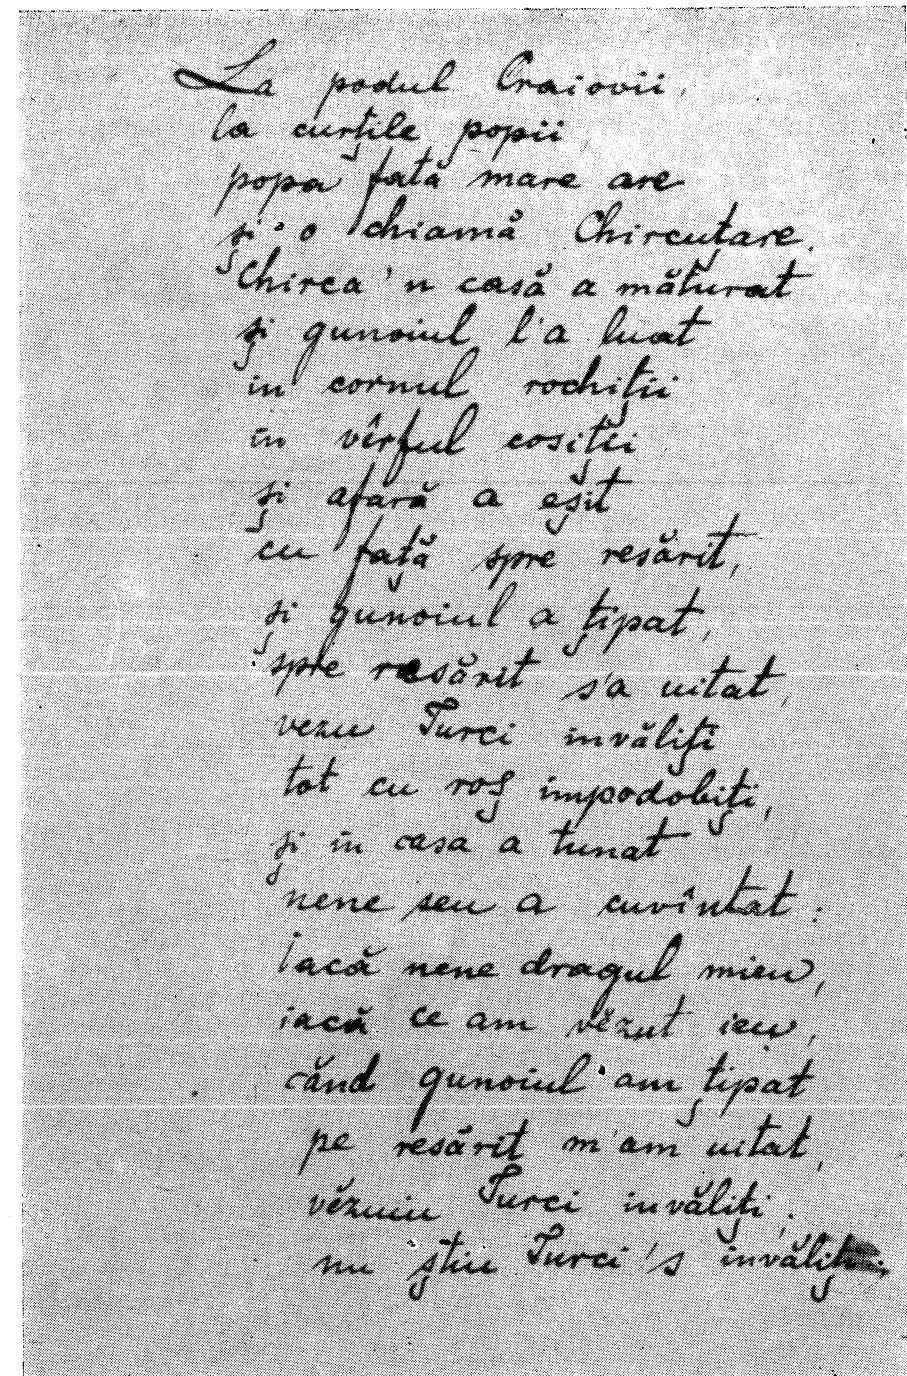 La podul Craiovii,
la curțile popii
popa fată mare are
și-o chiamă Chircuțare.
Chirca'n casă a măturat
și gunoiul l'a luat
in cornul rochiții
in vîrful cosiții
și afară a eșit
cu față spre resărit,
și gunoiul a țipat,
spre resărit s'a uitat,
vezu Turci invăliți
tot cu roș impodobiți,
și in casa a tunat
nene seu a cuvîntat:
Iacă nene dragul mieu,
iacă ce am vĕzut ieu,
cănd gunoiul am țipat
pe resărit m'am uitat,
vĕzuiu Turci invăliți;
nu știu Turci's invăliți;